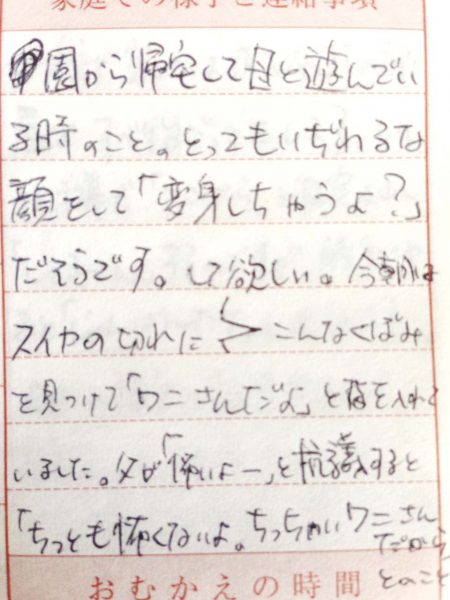 家庭での様子と連絡事項
園から帰宅して母と遊んでい
る時のこと。とってもいぢわるな
顔をして「変身しちゃうよ?」
だそうです。して欲しい。今朝は
スイカの切れに こんなくぼみ
を見つけて「ワニさんだよ」と
いました。父が「怖いよー」と抗議すると
「ちっとも怖くないよ。ちっちゃいワニさん
だから
とのこと
おむかえの時間